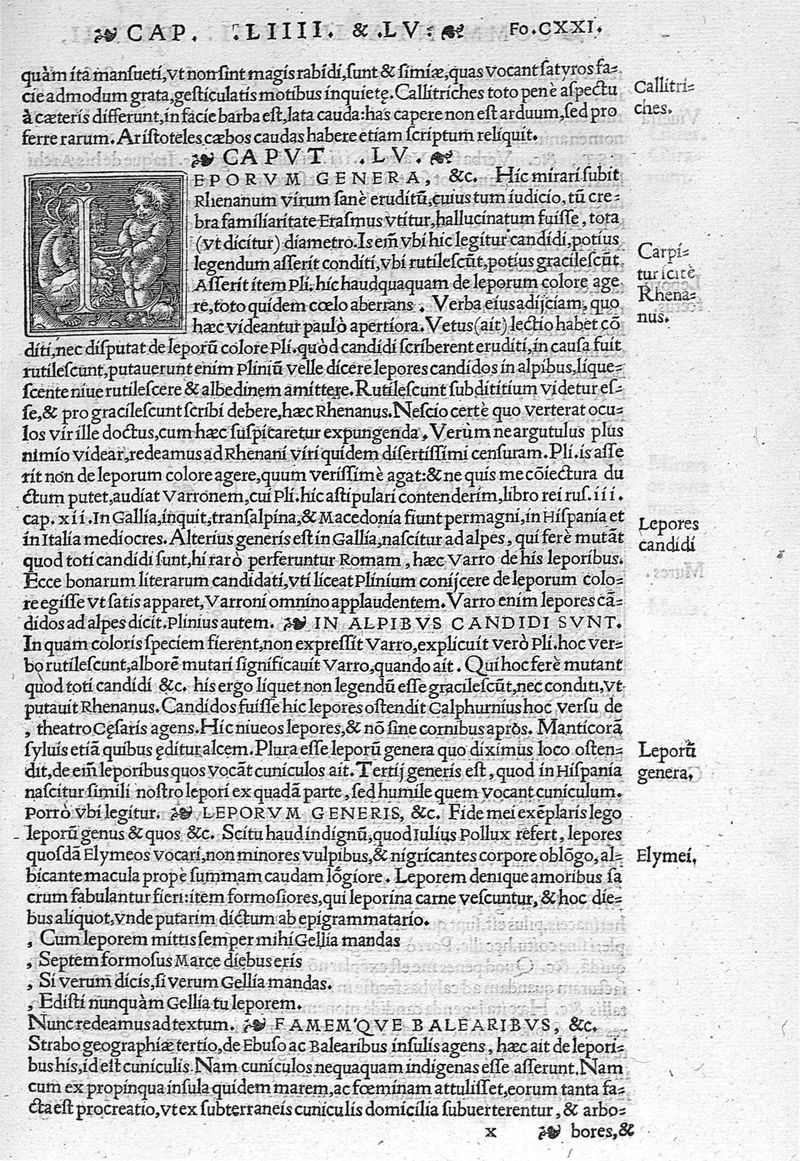 ❧ CAP. .LIIII. & LV: ☙ Fo.CXXI.
quàm ita mansueti,vt non sint magis rabidi,sunt & simiæ,quas vocant satyros fa-
cie admodum grata,gesticulatis motibus inquietę.Callitriches toto penè aspectu
à cæteris differunt,in facie barba est,lata cauda:has capere non est arduum,sed pro
ferre rarum. Aristoteles cæbos caudas habere etiam scriptum reliquit.
Callitri-
ches.
❧ CAPVT .LV. ☙
LEPORVM GENERA, &c. Hic mirari subit
Rhenanum virum sanè eruditũ,cuius tum iudicio, tũ cre-
bra familiaritate Erasmus vtitur,hallucinatum fuisse, tota
(vt dicitur) diametro.Is em̃ vbi hic legitur candidi,potius
legendum asserit conditi,vbi rutilescũt,potius gracilescũt
Asserit item Pli. hic haudquaquam de leporum colore age
re,toto quidem cœlo aberrans . Verba eius adijciam, quo
hæc videantur paulò apertiora. Vetus(ait) lectio habet cõ
diti,nec disputat de leporũ colore Pli. quòd candidi scriberent eruditi,in causa fuit
Carpi-
tur icitè
Rhena-
nus.
rutilescunt,putauerunt enim Pliniũ velle dicere lepores candidos in alpibus,lique-
scente niue rutilescere & albedinem amittere. Rutilescunt subdititium videtur es-
se,& pro gracilescunt scribi debere,hæc Rhenanus. Nescio certè quo verterat ocu-
los vir ille doctus,cum hæc suspicaretur expungenda. Verùm ne argutulus plus
nimio videar,redeamus ad Rhenani viri quidem disertissimi censuram. Pli. is asse
rit non de leporum colore agere, quum verissimè agat:& ne quis me cõiectura du
ctum putet,audiat Varronem,cui Pli. hic astipulari contenderim, libro rei rus. iii.
cap. xii. In Gallia,inquit,transalpina,& Macedonia fiunt permagni,in Hispania et
in Italia mediocres. Alterius generis est in Gallia,nascitur ad alpes, qui ferè mutãt
quod toti candidi sunt,hi rarò perferuntur Romam, hæc Varro de his leporibus.
Lepores
candidi
Ecce bonarum literarum candidati,vti liceat Plinium conijcere de leporum colo-
re egisse vt satis apparet, Varroni omnino applaudentem. Varro enim lepores cã-
didos ad alpes dicit. Plinius autem. ❧ IN ALPIBVS CANDIDI SVNT.
In quam coloris speciem fierent,non expressit Varro,explicuit verò Pli. hoc ver-
bo rutilescunt,alborẽ mutari significauit Varro,quando ait . Qui hoc ferè mutant
quod toti candidi &c. his ergo liquet non legendũ esse gracilescũt,nec conditi,vt
putauit Rhenanus. Candidos fuisse hic lepores ostendit Calphurnius hoc versu de
, theatro Cęsaris agens. Hic niueos lepores,& nõ sine cornibus apros. Manticorã
syluis etiã quibus ęditur alcem. Plura esse leporũ genera quo diximus loco osten-
dit,de em̃ leporibus quos vocãt cuniculos ait. Tertij generis est, quod in Hispania
nascitur simili nostro lepori ex quadã parte, sed humile quem vocant cuniculum.
Leporũ
genera.
Porrò vbi legitur. ❧ LEPORVM GENERIS, &c. Fide mei exẽplaris lego
leporũ genus & quos &c. Scitu haud indignũ, quod Iulius Pollux refert, lepores
quosdã Elymeos vocari,non minores vulpibus,& nigricantes corpore oblõgo, al-
Elymei.
bicante macula propè summam caudam lõgiore. Leporem denique amoribus sa
crum fabulantur fieri:item formosiores, qui leporina carne vescuntur, & hoc die-
bus aliquot,vnde putarim dictum ab epigrammatario.
, Cum leporem mittis semper mihi Gellia mandas
, Septem formosus Marce diebus eris
, Si verum dicis,si verum Gellia mandas.
, Edisti nunquàm Gellia tu leporem.
Nunc redeamus ad textum. ❧ FAMEM'QVE BALEARIBVS, &c.
Strabo geographiæ tertio, de Ebuso ac Balearibus insulis agens, hæc ait de lepori-
bus his,id est cuniculis. Nam cuniculos nequaquam indigenas esse asserunt. Nam
cum ex propinqua insula quidem marem,ac fœminam attulisset,eorum tanta fa-
cta est procreatio, vt ex subterraneis cuniculis domicilia subuerterentur, & arbo-
x ❧ bores,&